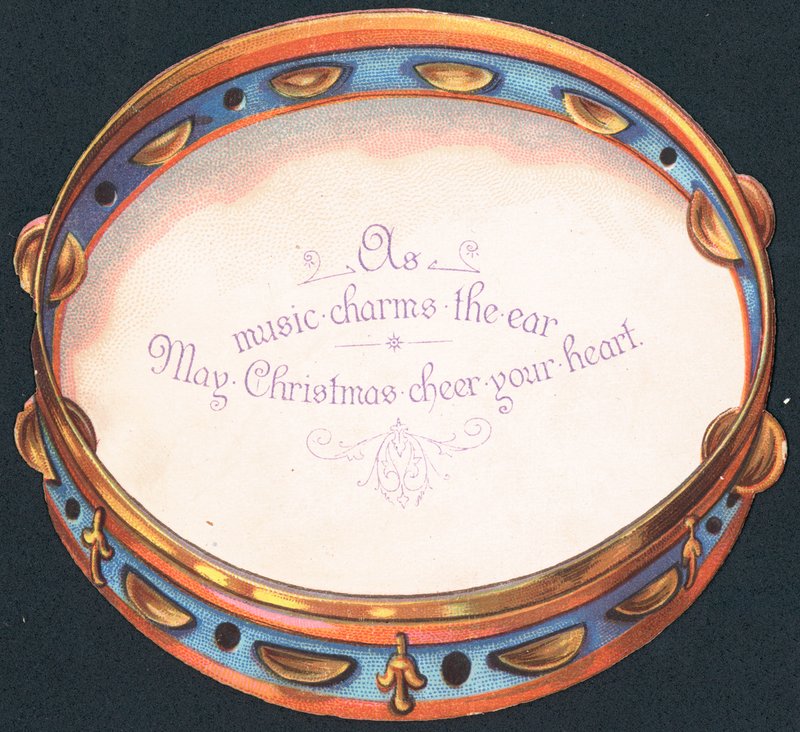 As
music·charms·the·ear
May·Christmas·cheer·your·heart.